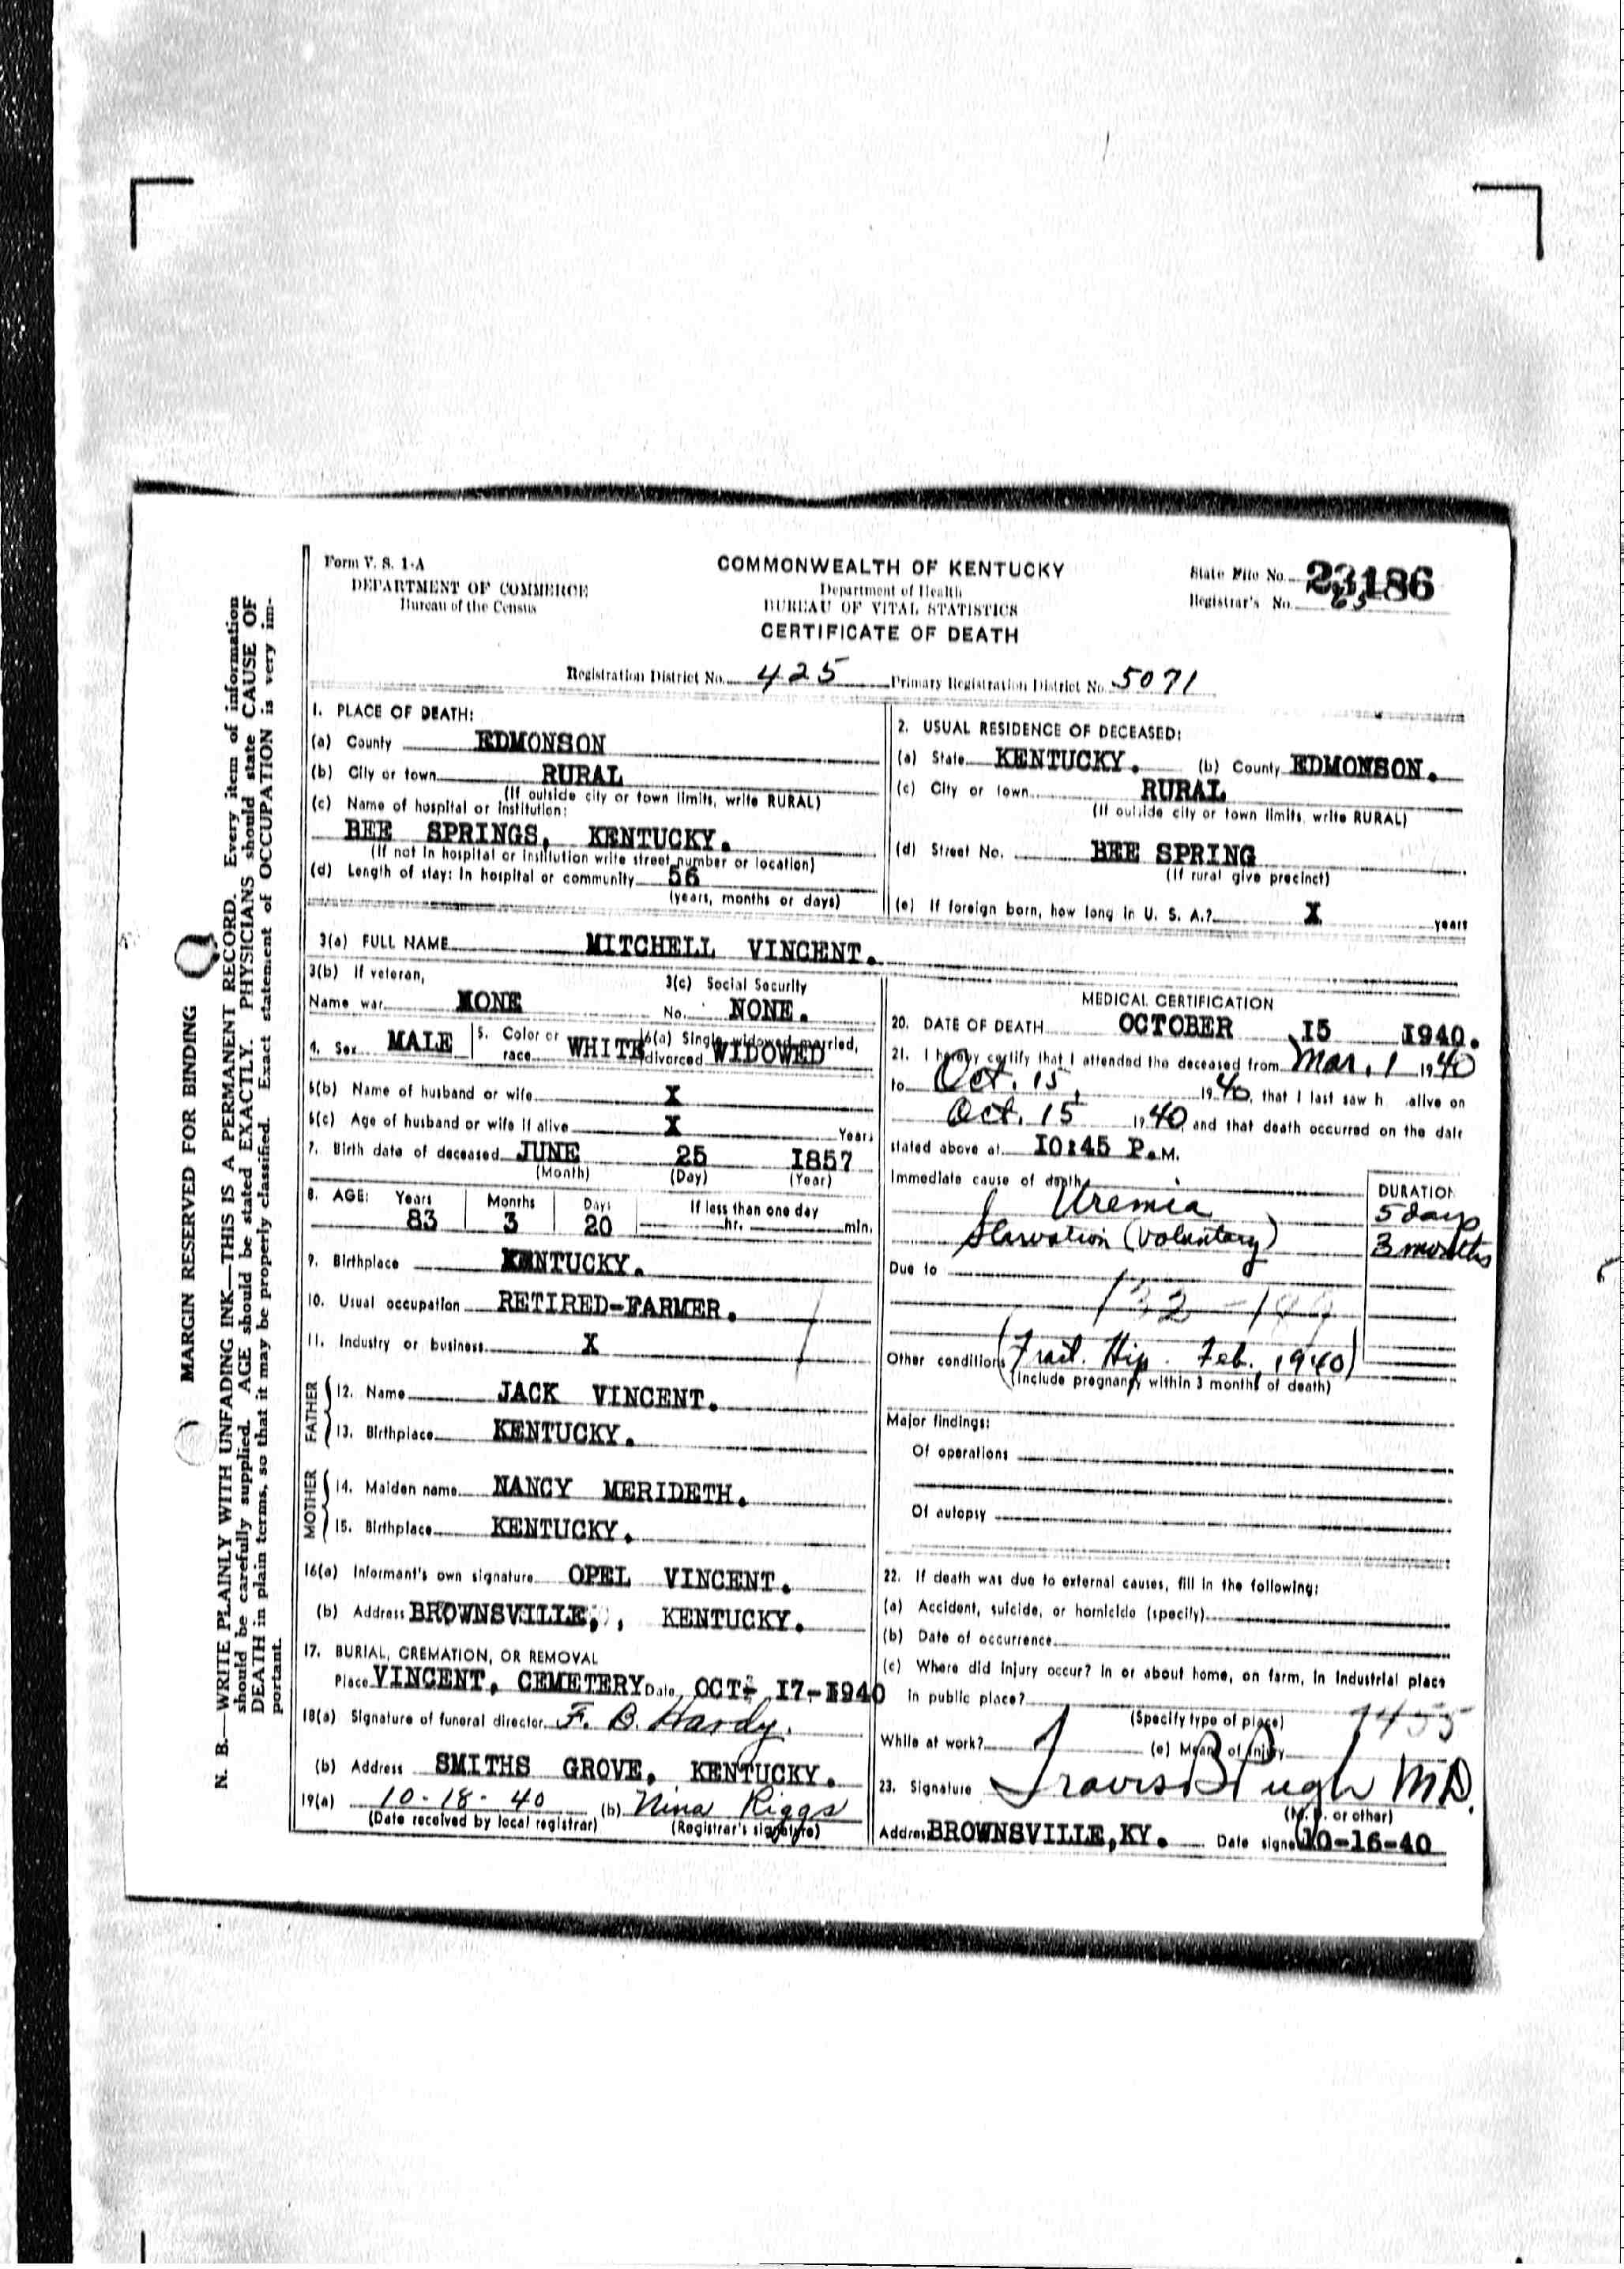 Form V. S. 1-A
DEPARTMENT OF COMMERCE
Bureau of the Census
COMMONWEALTH OF KENTUCKY
Department of Health
BUREAU OF VITAL STATISTICS
CERTIFICATE OF DEATH
State File No. 23186
Registrar's No. 65
Registration District No. 425 Primary Registration District No. 5071
MARGIN RESERVED FOR BINDING
N. B.—WRITE PLAINLY WITH UNFADING INK—THIS IS A PERMANENT RECORD. Every item of information
should be carefully supplied. AGE should be stated EXACTLY. PHYSICIANS should state CAUSE OF
DEATH in plain terms, so that it may be properly classified. Exact statement of OCCUPATION is very im-
portant.
1. PLACE OF DEATH:
(a) County EDMONSON
(b) City or town RURAL
(If outside city or town limits, write RURAL)
(c) Name of hospital or institution:
BEE SPRINGS, KENTUCKY.
(If not in hospital or institution write street number or location)
(d) Length of stay: In hospital or community 56
(years, months or days)
2. USUAL RESIDENCE OF DECEASED:
(a) State KENTUCKY. (b) County EDMONSON.
(c) City or town RURAL
(If outside city or town limits, write RURAL)
(d) Street No. BEE SPRING
(If rural give precinct)
(e) If foreign born, how long in U. S. A.? X years
3(a) FULL NAME MITCHELL VINCENT.
3(b) If veteran,
Name war NONE
3(c) Social Security
No. NONE.
4. Sex MALE 5. Color or race WHITE 6(a) Single, widowed, married, divorced WIDOWED
6(b) Name of husband or wife X
6(c) Age of husband or wife if alive X Years
7. Birth date of deceased JUNE 25 1857
(Month) (Day) (Year)
8. AGE: Years Months Days If less than one day
83 3 20 hr. min.
9. Birthplace KENTUCKY.
10. Usual occupation RETIRED-FARMER.
11. Industry or business X
FATHER
12. Name JACK VINCENT.
13. Birthplace KENTUCKY.
MOTHER
14. Maiden name NANCY MERIDETH.
15. Birthplace KENTUCKY.
16(a) Informant's own signature OPEL VINCENT.
(b) Address BROWNSVILLE, , KENTUCKY.
17. BURIAL, CREMATION, OR REMOVAL
Place VINCENT, CEMETERY Date OCT- 17-1940
18(a) Signature of funeral director F. B. Hardy.
(b) Address SMITHS GROVE, KENTUCKY.
19(a) 10-18-40 (b) Nina Riggs
(Date received by local registrar) (Registrar's signature)
MEDICAL CERTIFICATION
20. DATE OF DEATH OCTOBER 15 1940.
21. I hereby certify that I attended the deceased from Mar. 1 1940
to Oct. 15, 1940, that I last saw h alive on
Oct. 15 1940, and that death occurred on the date
stated above at 10:45 P.M.
Immediate cause of death
DURATION
Uremia 5 days
Starvation (voluntary) 3 months
Due to
132
Other conditions (Fract. Hip. Feb., 1940)
(Include pregnancy within 3 months of death)
Major findings:
Of operations
Of autopsy
22. If death was due to external causes, fill in the following:
(a) Accident, suicide, or homicide (specify)
(b) Date of occurrence
(c) Where did injury occur? In or about home, on farm, in industrial place
in public place?
(Specify type of place)
1455
While at work? (e) Means of injury
23. Signature Travis B Pugh MD.
(M. D. or other)
Address BROWNSVILLE, KY. Date signed 10-16-40